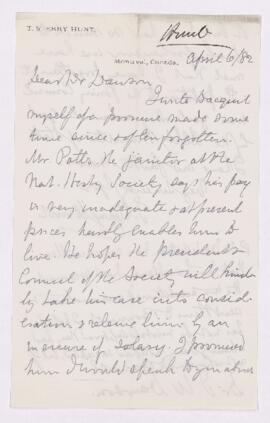 Hunt
T. STERRY HUNT.
Montreal, Canada. April 6/82
Dear Dr Dawson
I write to acquit
myself of a promise made some
time since & often forgotten.
Mr Potts the janitor at the
Nat. Hist'y Society says his pay
is very inadequate & at present
prices hardly enables him to
live. He hopes the President &
Council of the Society will kind
ly take his case into consid-
eration & relieve him by an
increase of salary. I promised
him I would speak to you about